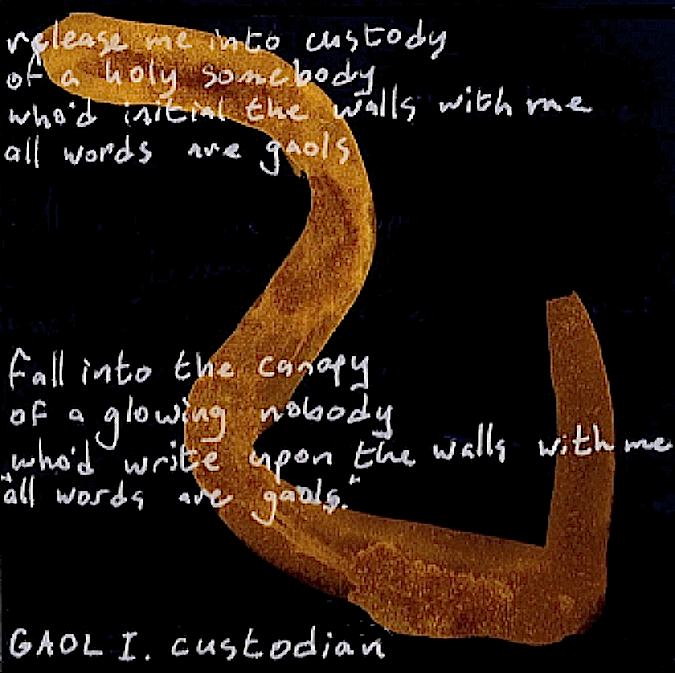 release me into custody
of a holy somebody
who'd initial the walls with me
all words are gaols
fall into the canopy
of a glowing nobody
who'd write upon the walls with me
"all words are gaols."
GAOL I. custodian